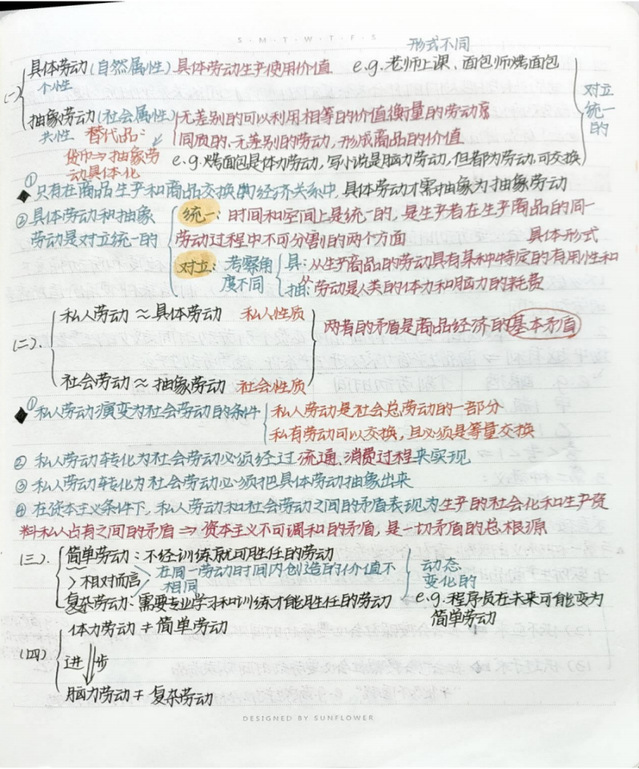 S·M·T·W·T·F·S
形式不同
(一) 具体劳动(自然属性) 具体劳动生产使用价值 e.g.老师上课、面包师烤面包
个性
抽象劳动(社会属性) 无差别的可以利用相等的价值衡量的劳动
共性 替代品: 同质的、无差别的劳动,形成商品的价值
货币⇒抽象劳动具体化 e.g.烤面包是体力劳动,写小说是脑力劳动,但都为劳动,可交换
对立统一的
◆①只有在商品生产和商品交换的经济关系中,具体劳动才需抽象为抽象劳动
②具体劳动和抽象 统一:时间和空间上是统一的,是生产者在生产商品的同一
劳动是对立统一的 劳动过程中不可分割的两个方面 具体形式
对立:考察角 具:从生产商品的劳动具有某种特定的有用性和
度不同 抽:劳动是人类的体力和脑力的耗费
(二). 私人劳动≈具体劳动 私人性质
两者的矛盾是商品经济的基本矛盾
社会劳动≈抽象劳动 社会性质
◆①私人劳动演变为社会劳动的条件 私人劳动是社会总劳动的一部分
私有劳动可以交换,且必须是等量交换
②私人劳动转化为社会劳动必须经过流通、消费过程来实现
③私人劳动转化为社会劳动必须把具体劳动抽象出来
④在资本主义条件下,私人劳动和社会劳动之间的矛盾表现为生产的社会化和生产资
料私人占有之间的矛盾⇒资本主义不可调和的矛盾,是一切矛盾的总根源
(三) 简单劳动:不经训练就可胜任的劳动
>相对而言> 在同一劳动时间内创造的价值不相同 动态变化的
复杂劳动:需要专业学习和训练才能胜任的劳动 e.g.程序员在未来可能变为
简单劳动
(四) 体力劳动≠简单劳动
进步
脑力劳动≠复杂劳动
DESIGNED BY SUNFLOWER